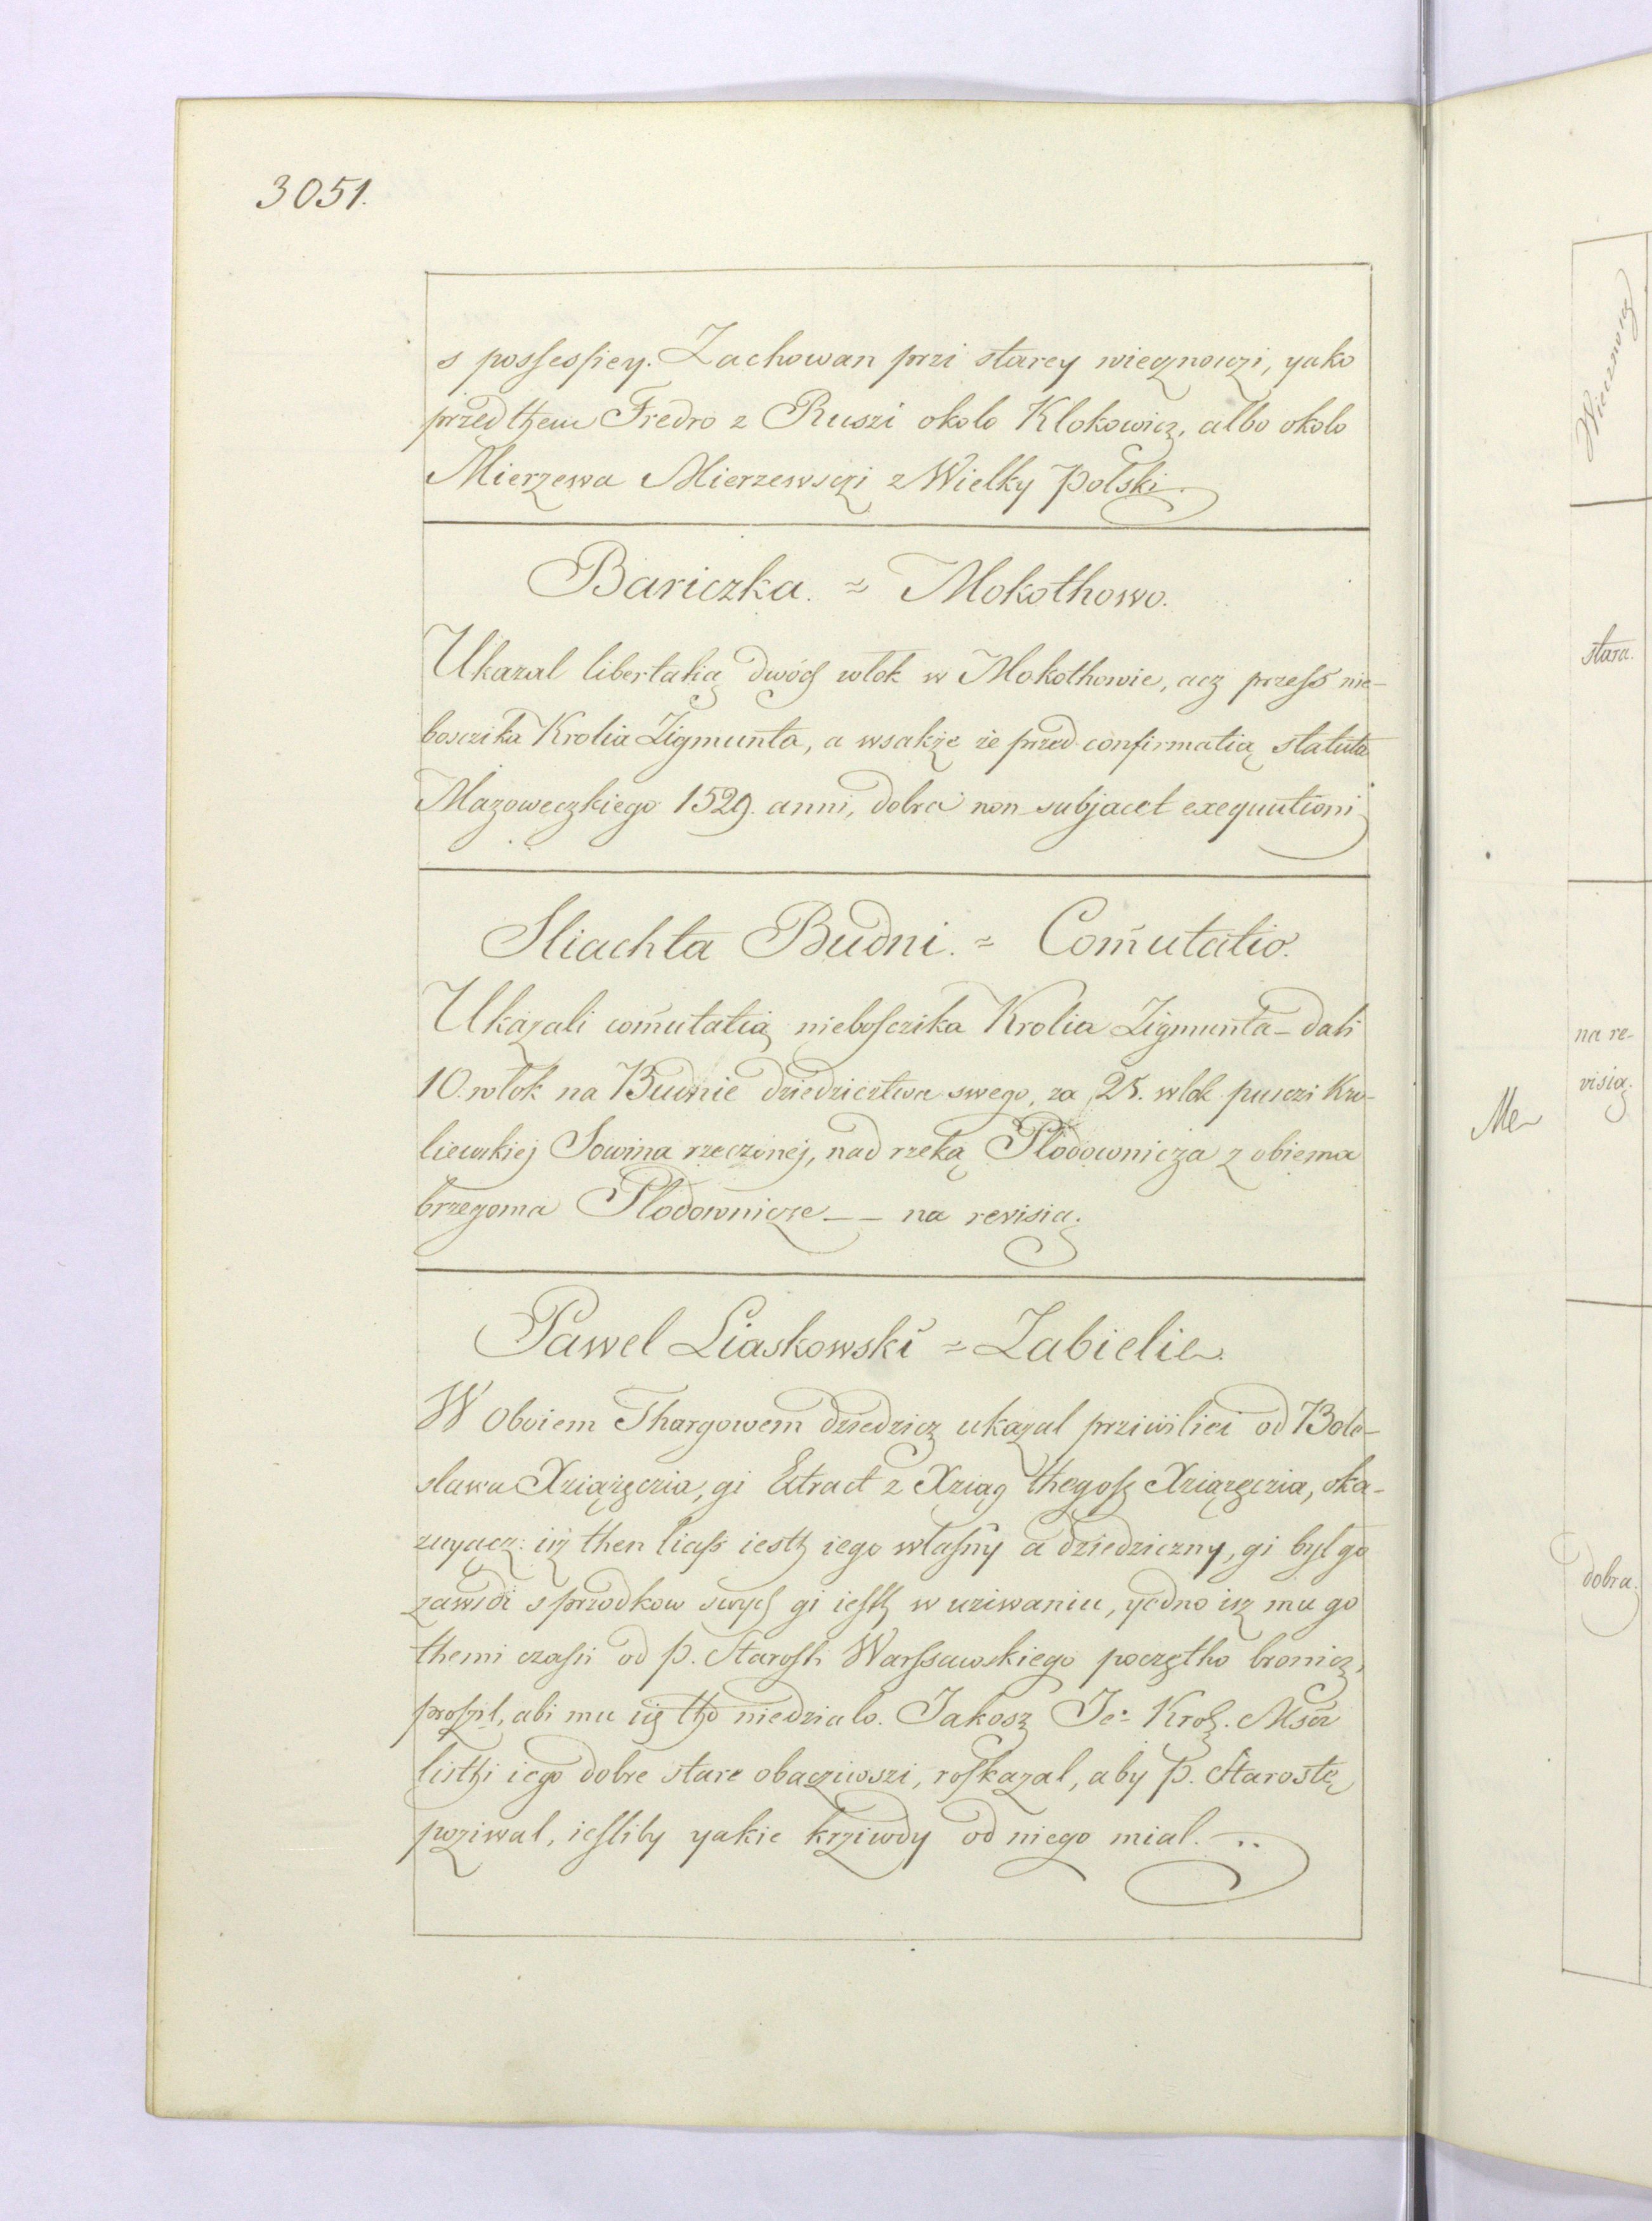 3051.
s possessiey. Zachowan przi starey wiecznosczi, yako
przedthem Fredro z Ruszi okolo Klokowicz, albo okolo
Mierzewa Mierzewsczi z Wielky Polski.
Bariczka. = Mokothowo.
Ukazal libertatią dwóch wlok w Mokothowie, acz przess nie-
bosczika Krolia Zigmunta, a wsakże że przed confirmatią statuta
Mazoweczkiego 1529. anni, dobra non subjacet exequutioni
Sliachta Budni. = Com̄utatio.
Ukazali com̄utatią niebosczika Krolia Zigmunta – dali
10. wlok na Budnie dziedzicztwa swego, za 25. wlok pusczi Kro-
liewskiej Sowina rzeczonej, nad rzeką Plodownicza z obiema
brzegoma Plodownicze – – na revisią.
Pawel Liaskowski = Zabielie.
W Oboiem Thargowem dziedzicz ukazal prziwiliei od Bole-
slawa Xziążęczia, gi Extract z Xziąg thegosz Xziążęczia, oka-
zuyącz: iż then liass iesth iego własny a dziedziczny, gi byl go
zawsdi s przodkow swych gi iesth w uziwaniu, yedno isz mu go
themi czasii od P. Starosti Warssawskiego poczętho bronicz,
proszil, abi mu się tho niedzialo. Jakosz Je: Kroł. Mscz
listhi iego dobre stare obacziwszi, roskazal, aby P. Starostę
poziwal, iessliby yakie krziwdy od niego mial.
Wiecznoscz
stara.
na re-
visią.
Me
dobra.